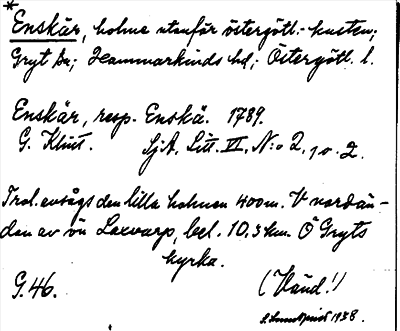 * Enskär, holme utanför östergötl.-kusten;
Gryt sn; Hammarkinds hd; Östergötl. l.
Enskär, resp. Enskä. 1789.
G. Klint. SjA. Litt. VI, N:o 2, 1 o. 2.
Trol. avsågs den lilla holmen 400 m. V nordän-
den av ön Laxvarp, bel. 10.3 km. Ö Gryts
kyrka.
G. 46. (Vänd!)
S. Lundqvist 1938.